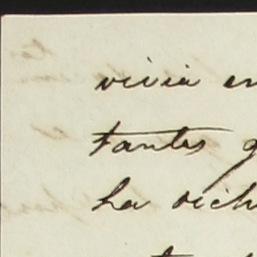 vivia en
tantes g
ha dich